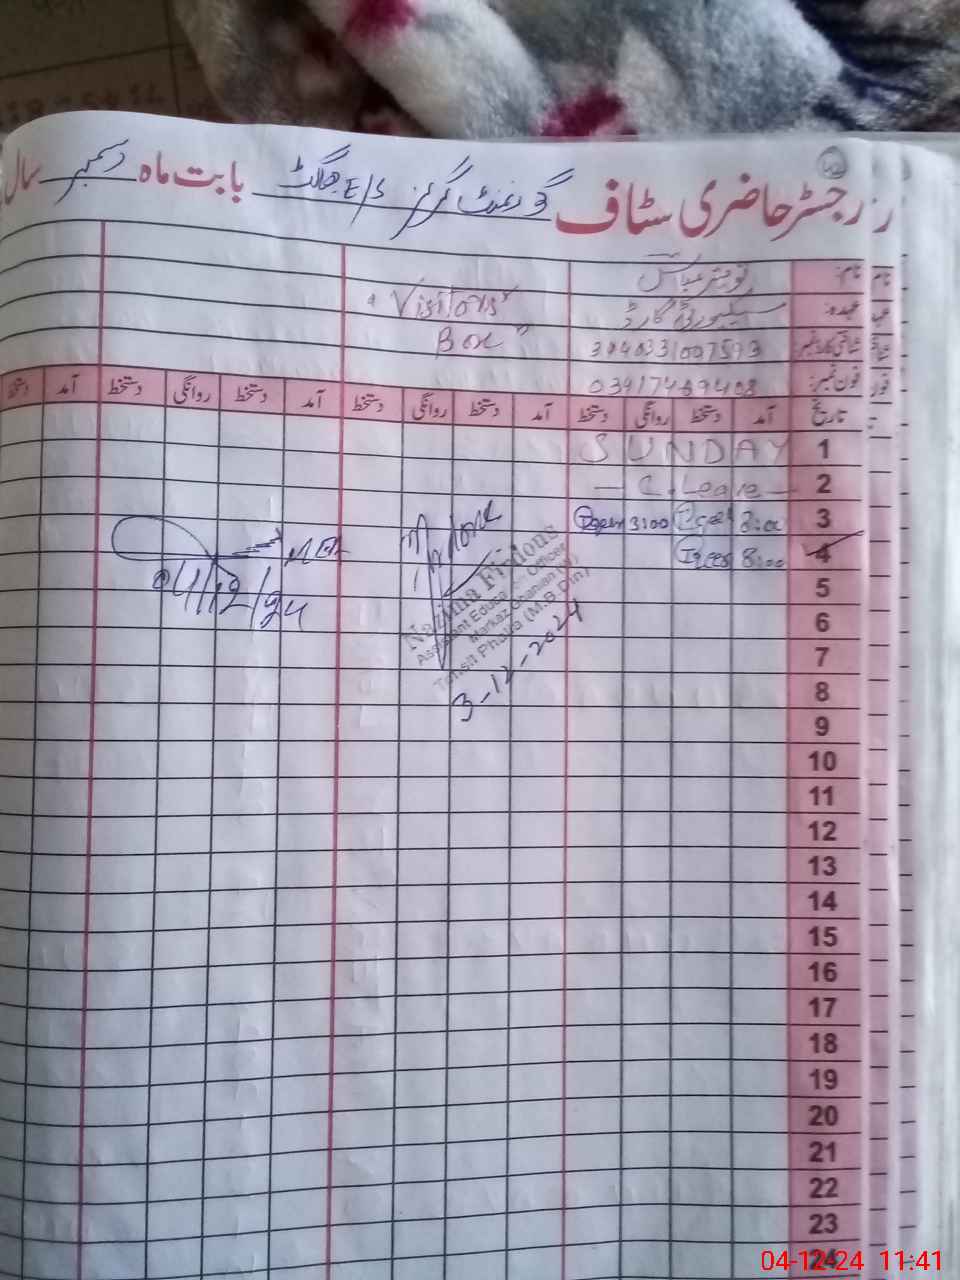 رجسٹر حاضری سٹاف گورنمنٹ گرلز E/S بابت ماہ دسمبر سال
نام:
عہدہ: سیکیورٹی گارڈ
شناختی کارڈ نمبر:
فون نمبر:
"Visitors"
Box"
تاریخ آمد دستخط روانگی دستخط آمد دستخط روانگی دستخط آمد دستخط روانگی دستخط آمد دستخط
1 SUNDAY
2 — C.Leave —
3 8:00 3:00
4 8:00
5
6
7
8
9
10
11
12
13
14
15
16
17
18
19
20
21
22
23
24
Nazima Firdous
Assistant Education Officer
Markaz Ghanian (W)
Tehsil Phalia (M.B.Din)
3-12-2024
04/12/24
04-12-24 11:41